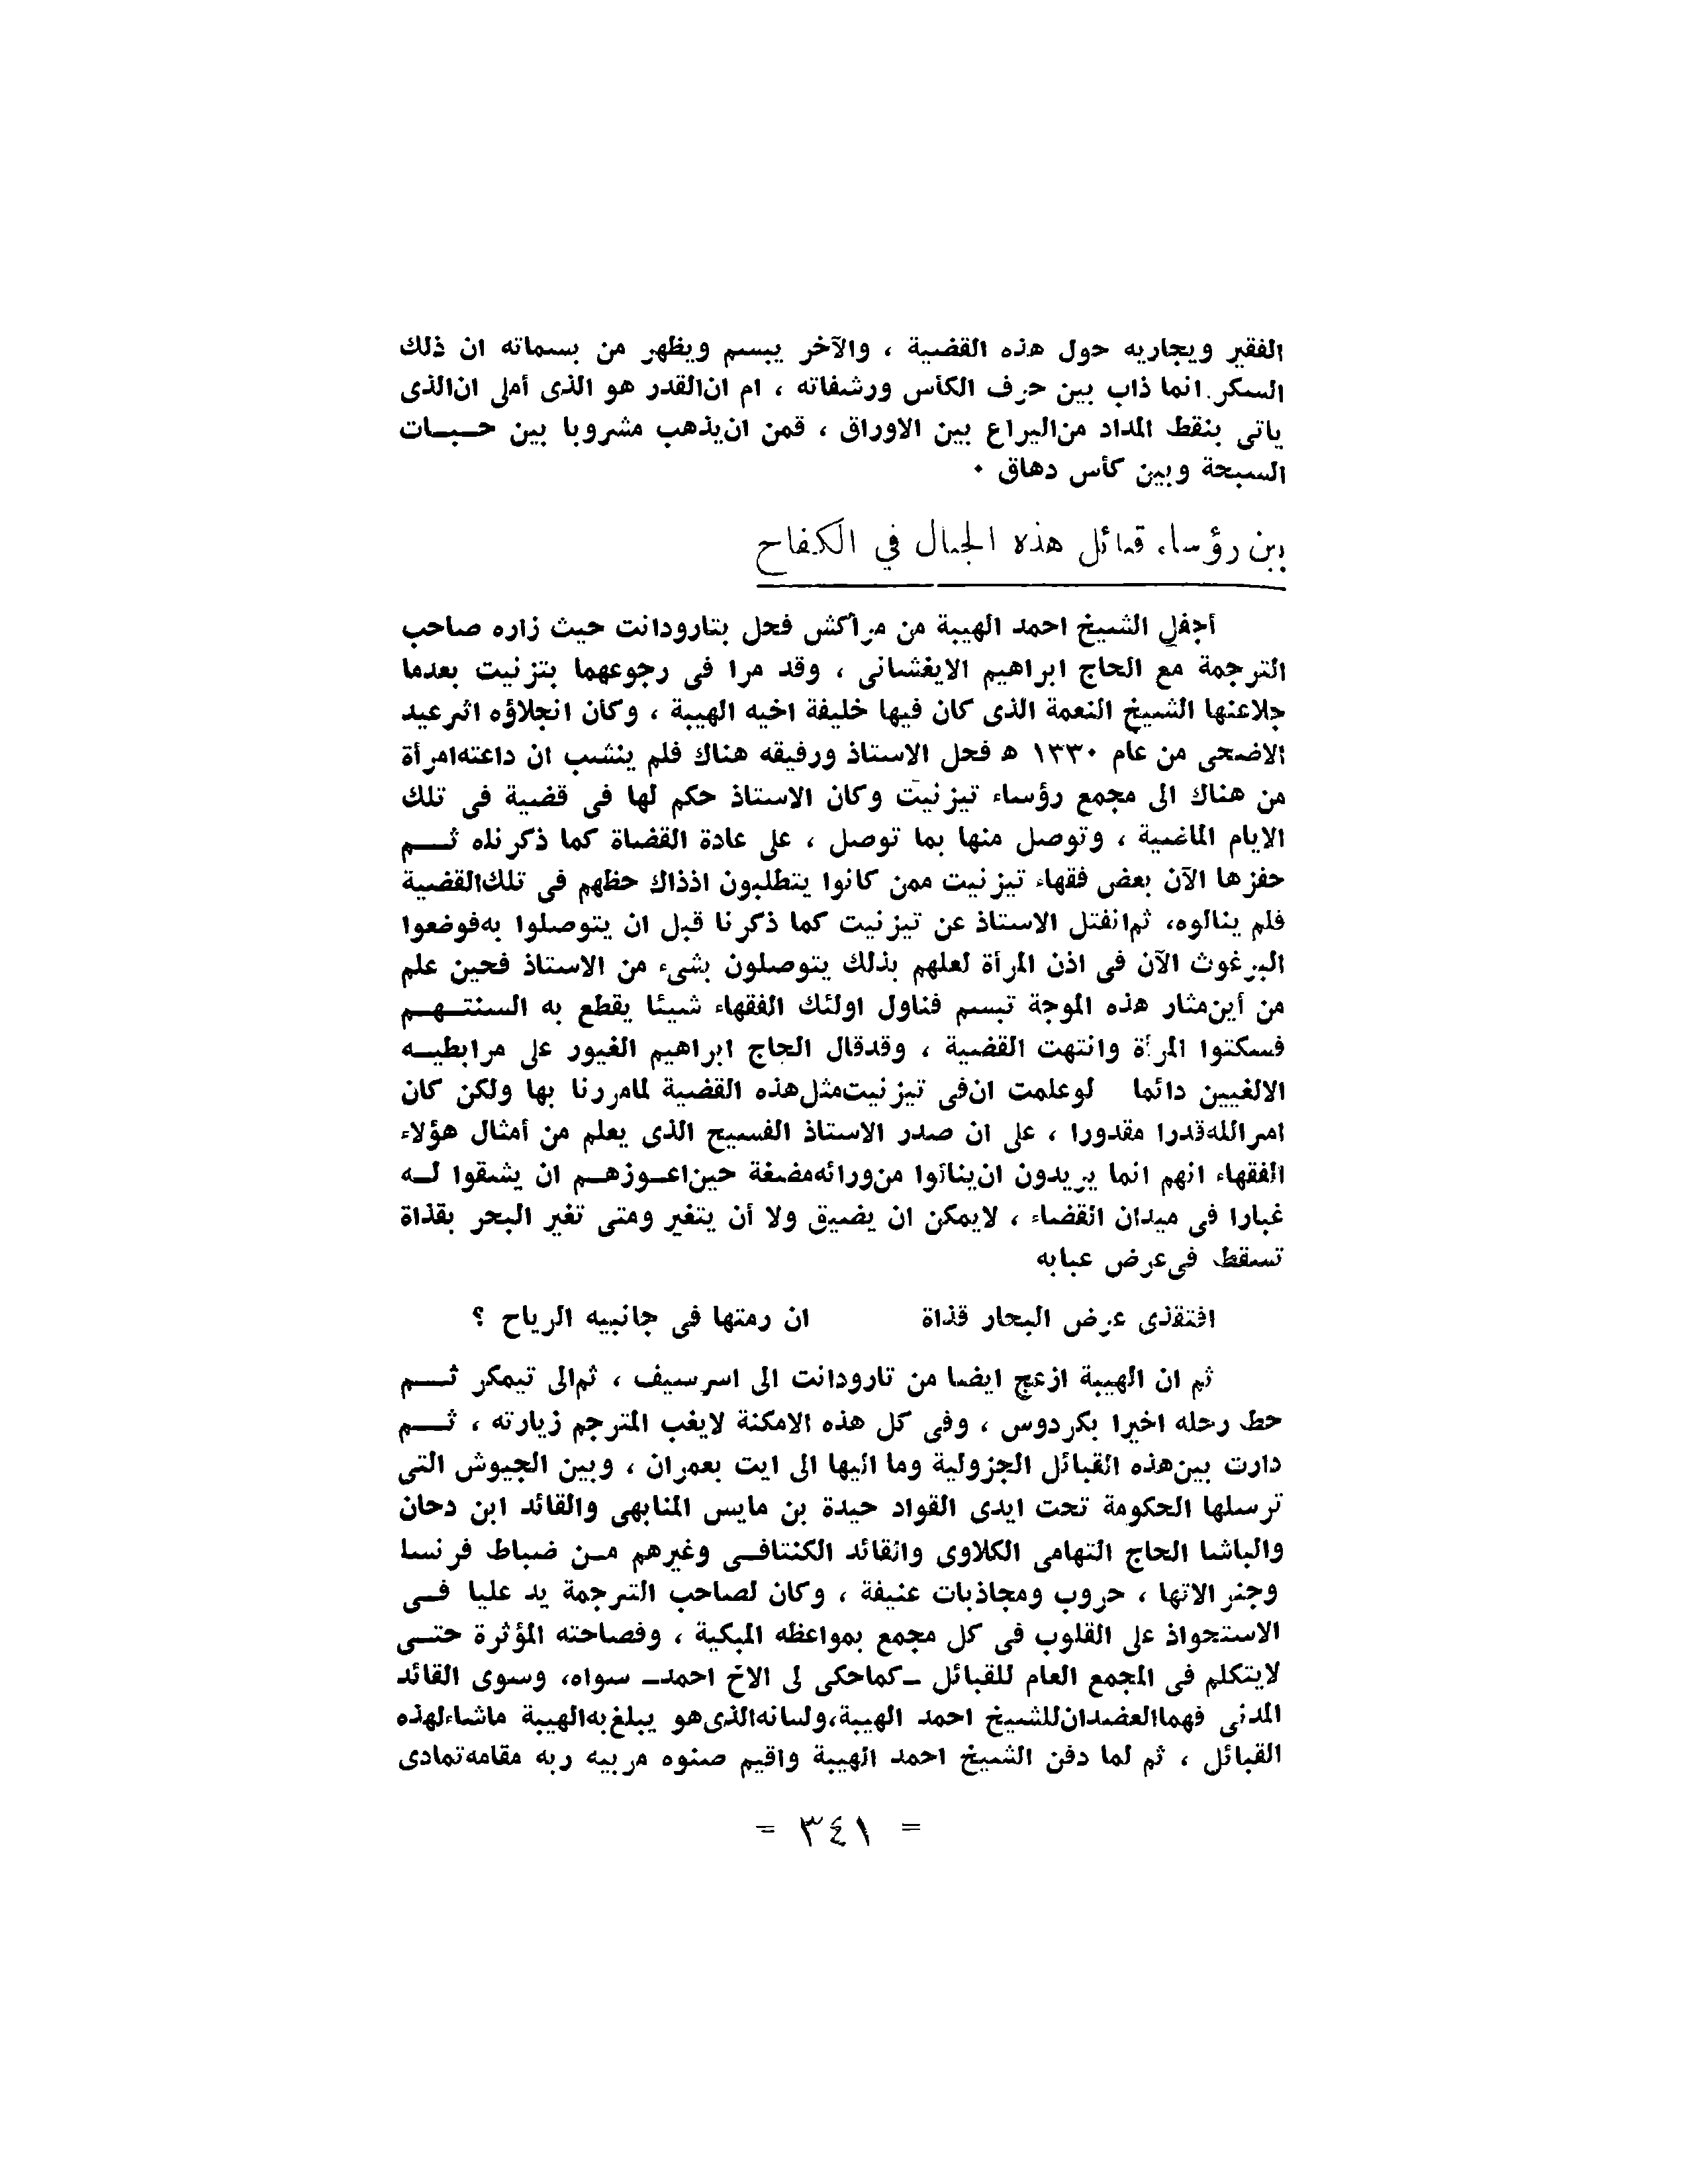 الفقير ويجاريه حول هذه القضية ، والآخر يبسم ويظهر من بسماته ان ذلك
السكر انما ذاب بين حرف الكأس ورشفاته ، ام ان القدر هو الذى أملى ان الذى
ياتى بنقط المداد من اليراع بين الاوراق ، قمن ان يذهب مشروبا بين حبات
السبحة وبين كأس دهاق ٠
بين رؤساء قبائل هذه الجبال في الكفاح
أجفل الشيخ احمد الهيبة من مراكش فحل بتارودانت حيث زاره صاحب
الترجمة مع الحاج ابراهيم الايغشانى ، وقد مرا فى رجوعهما بتزنيت بعدما
جلاعنها الشيخ النعمة الذى كان فيها خليفة اخيه الهيبة ، وكان انجلاؤه اثر عيد
الاضحى من عام ١٣٣٠ ه فحل الاستاذ ورفيقه هناك فلم ينشب ان داعته امرأة
من هناك الى مجمع رؤساء تيزنيت وكان الاستاذ حكم لها فى قضية فى تلك
الايام الماضية ، وتوصل منها بما توصل ، على عادة القضاة كما ذكرناه ثم
حفزها الآن بعض فقهاء تيزنيت ممن كانوا يتطلبون اذذاك حظهم فى تلك القضية
فلم ينالوه، ثم انفتل الاستاذ عن تيزنيت كما ذكرنا قبل ان يتوصلوا به فوضعوا
البرغوث الآن فى اذن المرأة لعلهم بذلك يتوصلون بشىء من الاستاذ فحين علم
من أين مثار هذه الموجة تبسم فناول اولئك الفقهاء شيئا يقطع به السنتهم
فسكتوا المرأة وانتهت القضية ، وقد قال الحاج ابراهيم الغيور على مرابطيه
الالغيين دائما لو علمت ان فى تيزنيت مثل هذه القضية لما مررنا بها ولكن كان
امر الله قدرا مقدورا ، على ان صدر الاستاذ الفسيح الذى يعلم من أمثال هؤلاء
الفقهاء انهم انما يريدون ان ينالوا من ورائه مضغة حين اعوزهم ان يشقوا له
غبارا فى ميدان القضاء ، لايمكن ان يضيق ولا أن يتغير ومتى تغير البحر بقذاة
تسقط فى عرض عبابه
افتقذى عرض البحار قذاة ان رمتها فى جانبيه الرياح ؟
ثم ان الهيبة ازعج ايضا من تارودانت الى اسرسيف ، ثم الى تيمكر ثم
حط رحله اخيرا بكردوس ، وفى كل هذه الامكنة لايغب المترجم زيارته ، ثم
دارت بين هذه القبائل الجزولية وما اليها الى ايت بعمران ، وبين الجيوش التى
ترسلها الحكومة تحت ايدى القواد حيدة بن مايس المنابهى والقائد ابن دحان
والباشا الحاج التهامى الكلاوى والقائد الكنتافى وغيرهم من ضباط فرنسا
وجنرالاتها ، حروب ومجاذبات عنيفة ، وكان لصاحب الترجمة يد عليا فى
الاستحواذ على القلوب فى كل مجمع بمواعظه المبكية ، وفصاحته المؤثرة حتى
لايتكلم فى المجمع العام للقبائل - كما حكى لى الاخ احمد - سواه، وسوى القائد
المدنى فهما العضدان للشيخ احمد الهيبة، ولسانه الذى هو يبلغ به الهيبة ماشاء لهذه
القبائل ، ثم لما دفن الشيخ احمد الهيبة واقيم صنوه مربيه ربه مقامه تمادى
= ٣٤١ =